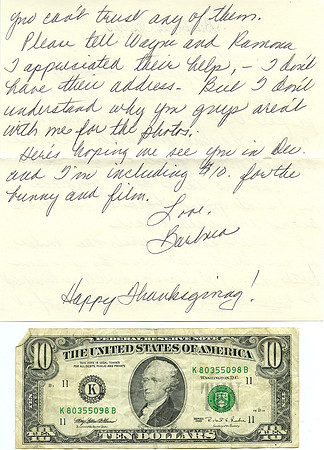 you can't trust any of them.
Please tell Wayne and Ramona
I appreciated their help, - I don't
have their address - But I don't
understand why you guys aren't
with me for the photos.
Here's hoping we see you in Dec.
and I'm including $10. for the
bunny and film.
Love,
Barbara
Happy Thanksgiving!
FEDERAL RESERVE NOTE
10 THE UNITED STATES OF AMERICA 10
THIS NOTE IS LEGAL TENDER
FOR ALL DEBTS, PUBLIC AND PRIVATE
K 80355098 B
WASHINGTON, D.C.
11 11
K
K 80355098 B
11 11
SERIES
10 TEN DOLLARS 10